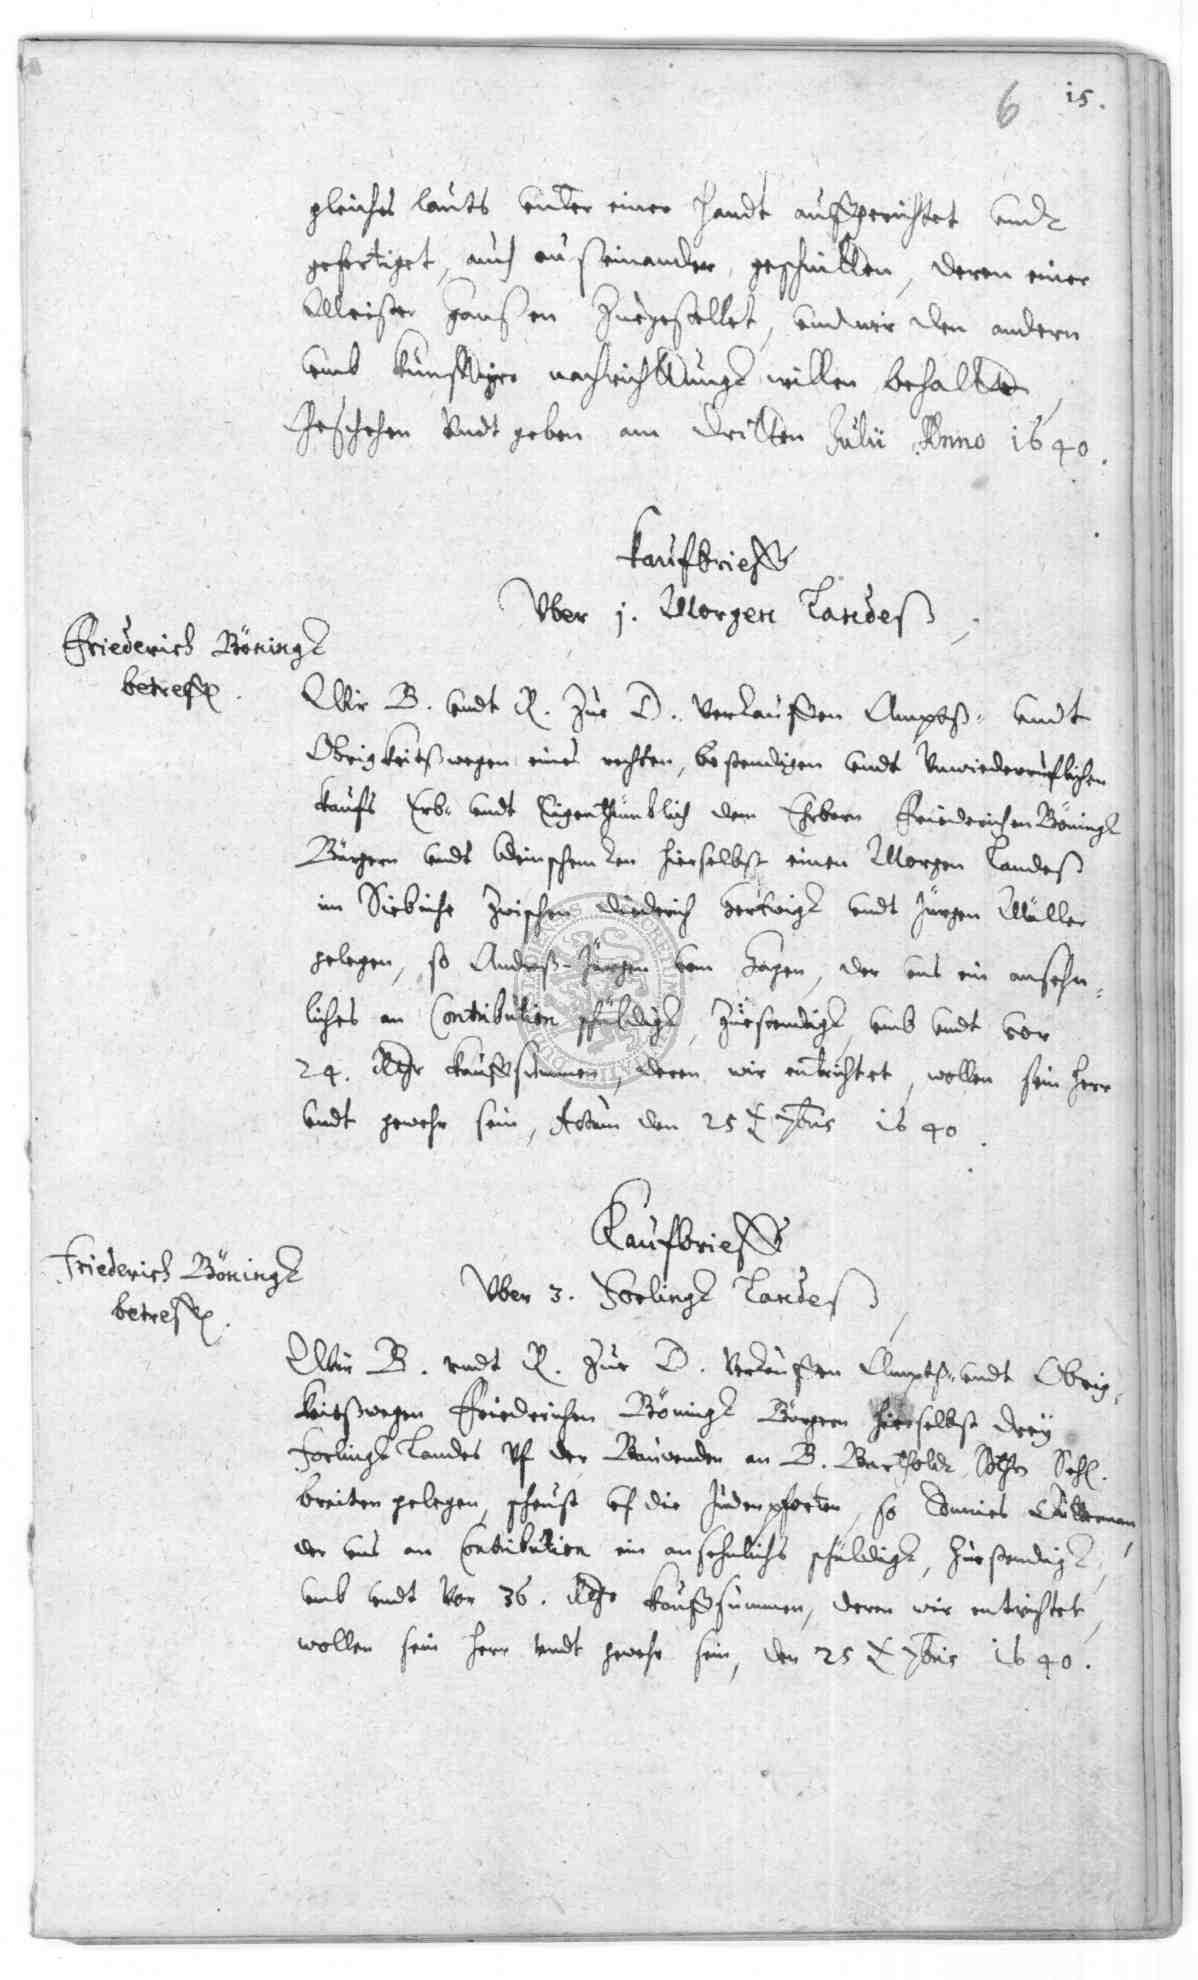 6 15.
gleiches lauts unter einer Handt auffgerichtet undt
gefertiget, auch auß einander geschnitten, deren einer
Meister Hansen Zugestellet, und wir den andern
umb künfftiger nachrichtung willen behalten,
Geschehen Undt geben am dritten Julii Anno 1640.
Kaufbrieff
Uber 1. Morgen Landeß,
Friederich Böningk
betreff.
Wir B. undt R. Zue D. Verkauffen Ampts- undt
Obrigkeitßwegen eines rechten, bestendigen undt Unwiederruflichen
Kaufs Erb- undt Eigenthümblich dem Ehrbarn Friederichen Böningk
Bürgern undt hierselbst einen Morgen Landeß
im Siebiche Zwischen Diederich Hertwigk undt Jürgen Müller
gelegen, so Andreß Jürgen vom Hagen, der uns ein ansehn-
liches an Contribution schuldigk, Zuestendigk, umb undt vor
24. Rthr Kauffsummen, deren wir entrichtet, wollen sein Herr
undt gewehr sein, Actum den 25 Xbris 1640.
Kaufbrieff
Uber 3. Forlingk Landeß,
Friederich Böningk
betreff.
Wir B. undt R. Zue D. Verkauffen Ampts- undt Obrig-
keitßwegen Friederichen Böningk Bürgern hierselbst Drey
Forlingk Landes Uf der an B. Bartholdt Sehl.
breiten gelegen, scheust uf die Judenpforten, so
der uns an Contribution ein ansehnlichs schuldigk, Zuestendigk,
umb undt Vor 36. Rthr Kauffsummen, deren wir entrichtet,
wollen sein Herr undt gewehr sein, den 25 Xbris 1640.